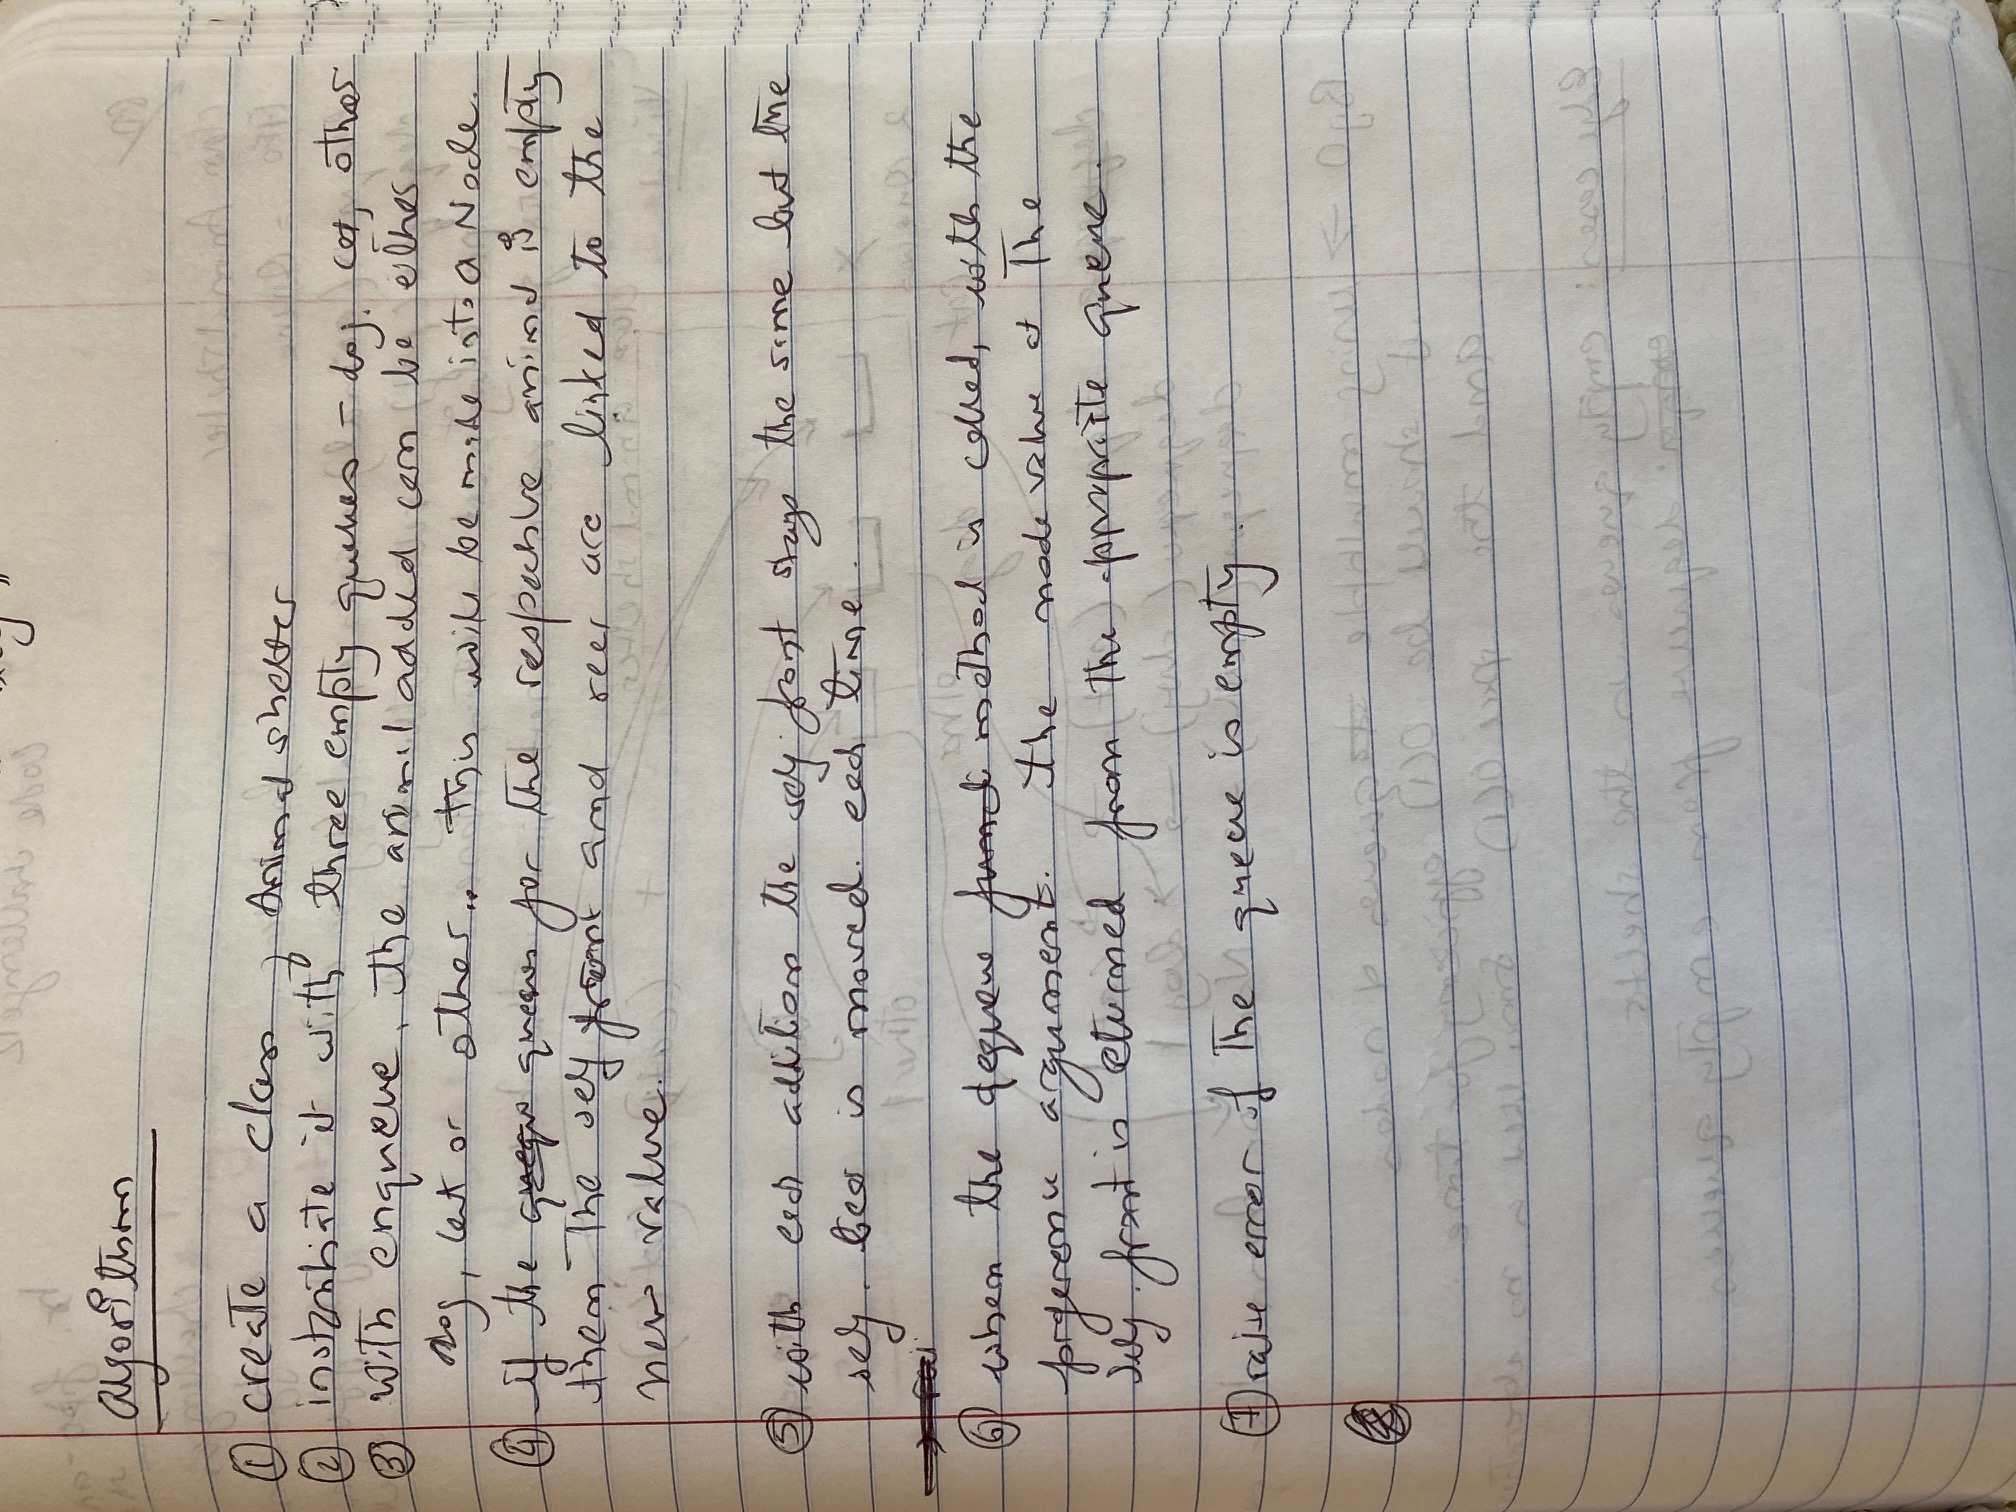 algorithm
① create a class of Animal shelter
② instantiate it with three empty queues - dog, cat, other
③ with enqueue, the animal added can be either
dog, cat or other.. This will be made into a Node.
④ if the queues for the respective animal is empty
then The self front and rear are linked to the
new value.
⑤ with each addition the self.front stays the same but the
self. rear is moved. each time.
⑥ when the dequeue method is called, with the
preference argument. The node value at The
self.front is returned from the appropriate queue.
⑦ raise error if The queue is empty.